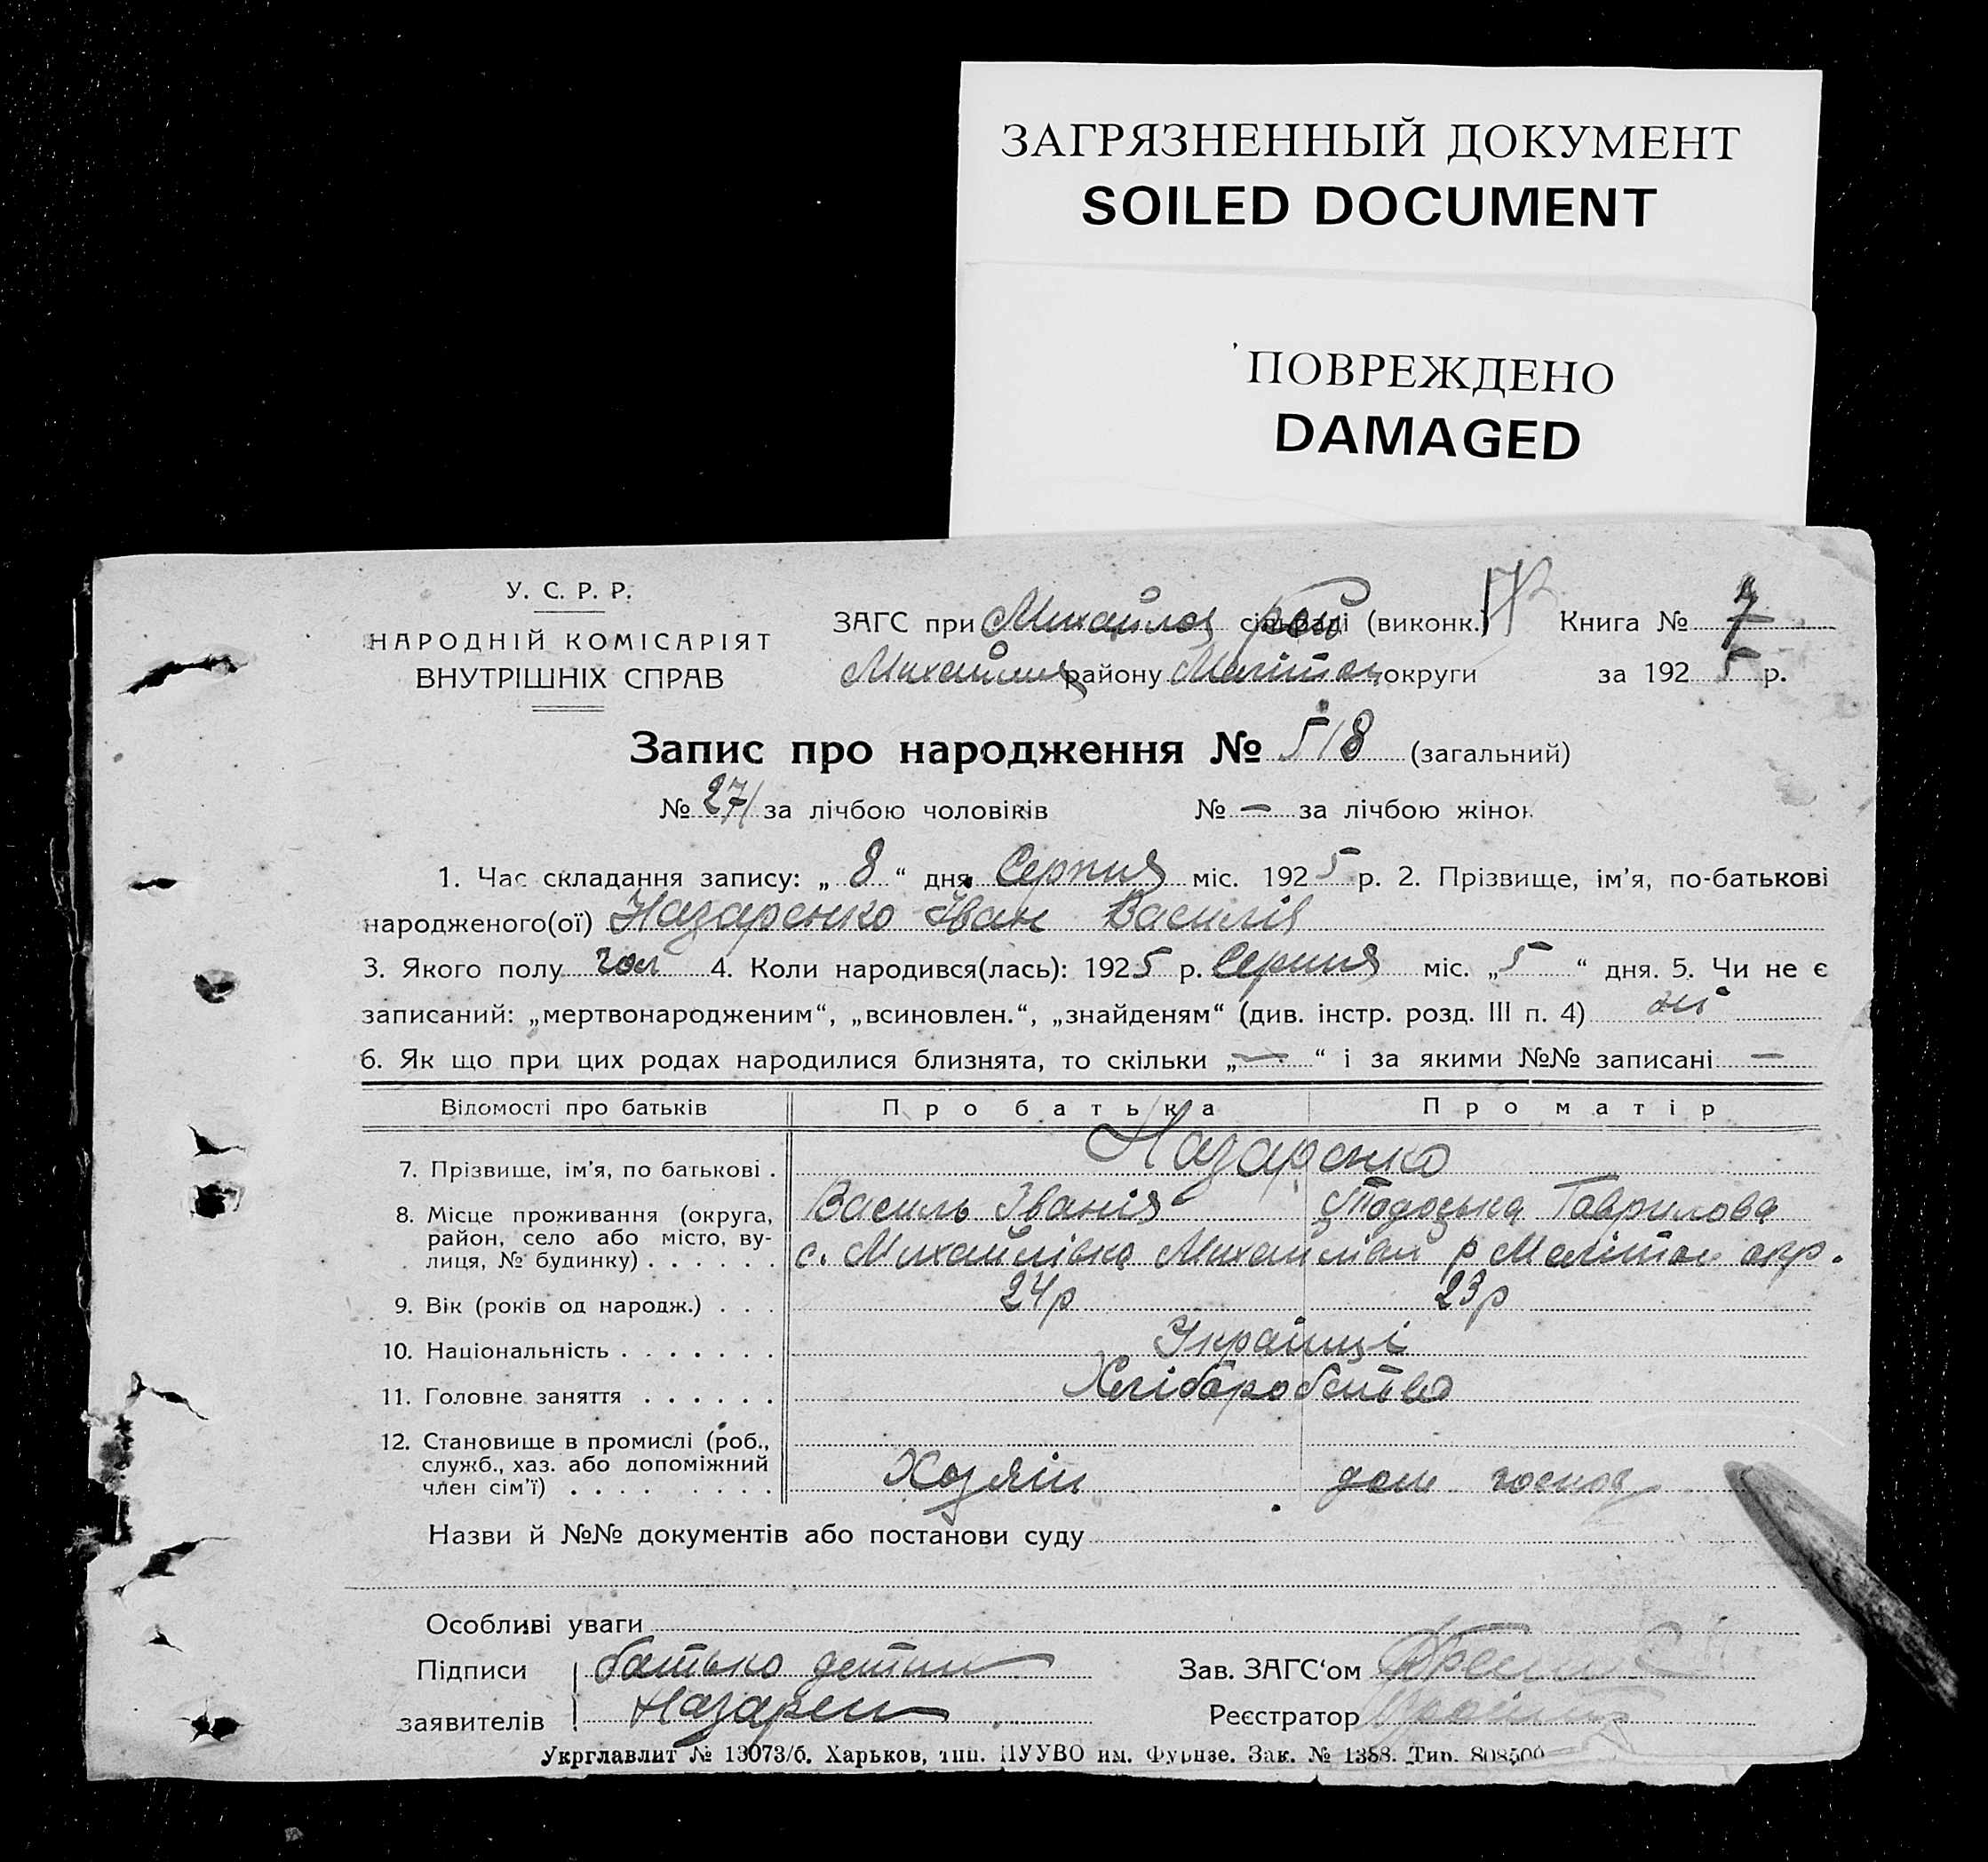 ЗАГРЯЗНЕННЫЙ ДОКУМЕНТ
SOILED DOCUMENT
ПОВРЕЖДЕНО
DAMAGED
У. С. Р. Р.
НАРОДНІЙ КОМІСАРІЯТ
ВНУТРІШНІХ СПРАВ
ЗАГС при Михайлов сільраді рай (виконк.) Книга № 7
Михайлів району Мелітоп округи за 192 5 р.
Запис про народження № 518 (загальний)
№ 271 за лічбою чоловіків № — за лічбою жінок
1. Час складання запису: „ 8 “ дня Серпня міс. 192 5 р. 2. Прізвище, ім’я, по-батькові
народженого(ої) Назаренко Іван Василів
3. Якого полу чол 4. Коли народився(лась): 192 5 р. Серпня міс. „ 5 “ дня. 5. Чи не є
записаний: „мертвонародженим“, „всиновлен.“, „знайденям“ (див. інстр. розд. III п. 4) ні
6. Як що при цих родах народилися близнята, то скільки „ — “ і за якими №№ записані —
Відомості про батьків Про батька Про матір
7. Прізвище, ім’я, по батькові . Назаренко
8. Місце проживання (округа, Василь Іванів Тодоська Гаврилова
район, село або місто, ву-
лиця, № будинку) . . . . . . с. Михайлівка Михайлівск р Мелітоп окр.
9. Вік (років од народж.) . . . 24р 23р
10. Національність . . . . . . . Українці
11. Головне заняття . . . . . . Хліборобство
12. Становище в промислі (роб.,
служб., хаз. або допоміжний
член сім’ї) . . . . . . . . Хозяїн дом господ
Назви й №№ документів або постанови суду
Особливі уваги
Підписи батько детини Зав. ЗАГС‘ом
заявителів Назарен Реєстратор
Укрглавлит № 13073/б. Харьков, тип. ПУУВО им. Фрунзе. Зак. № 1358. Тир. 808500